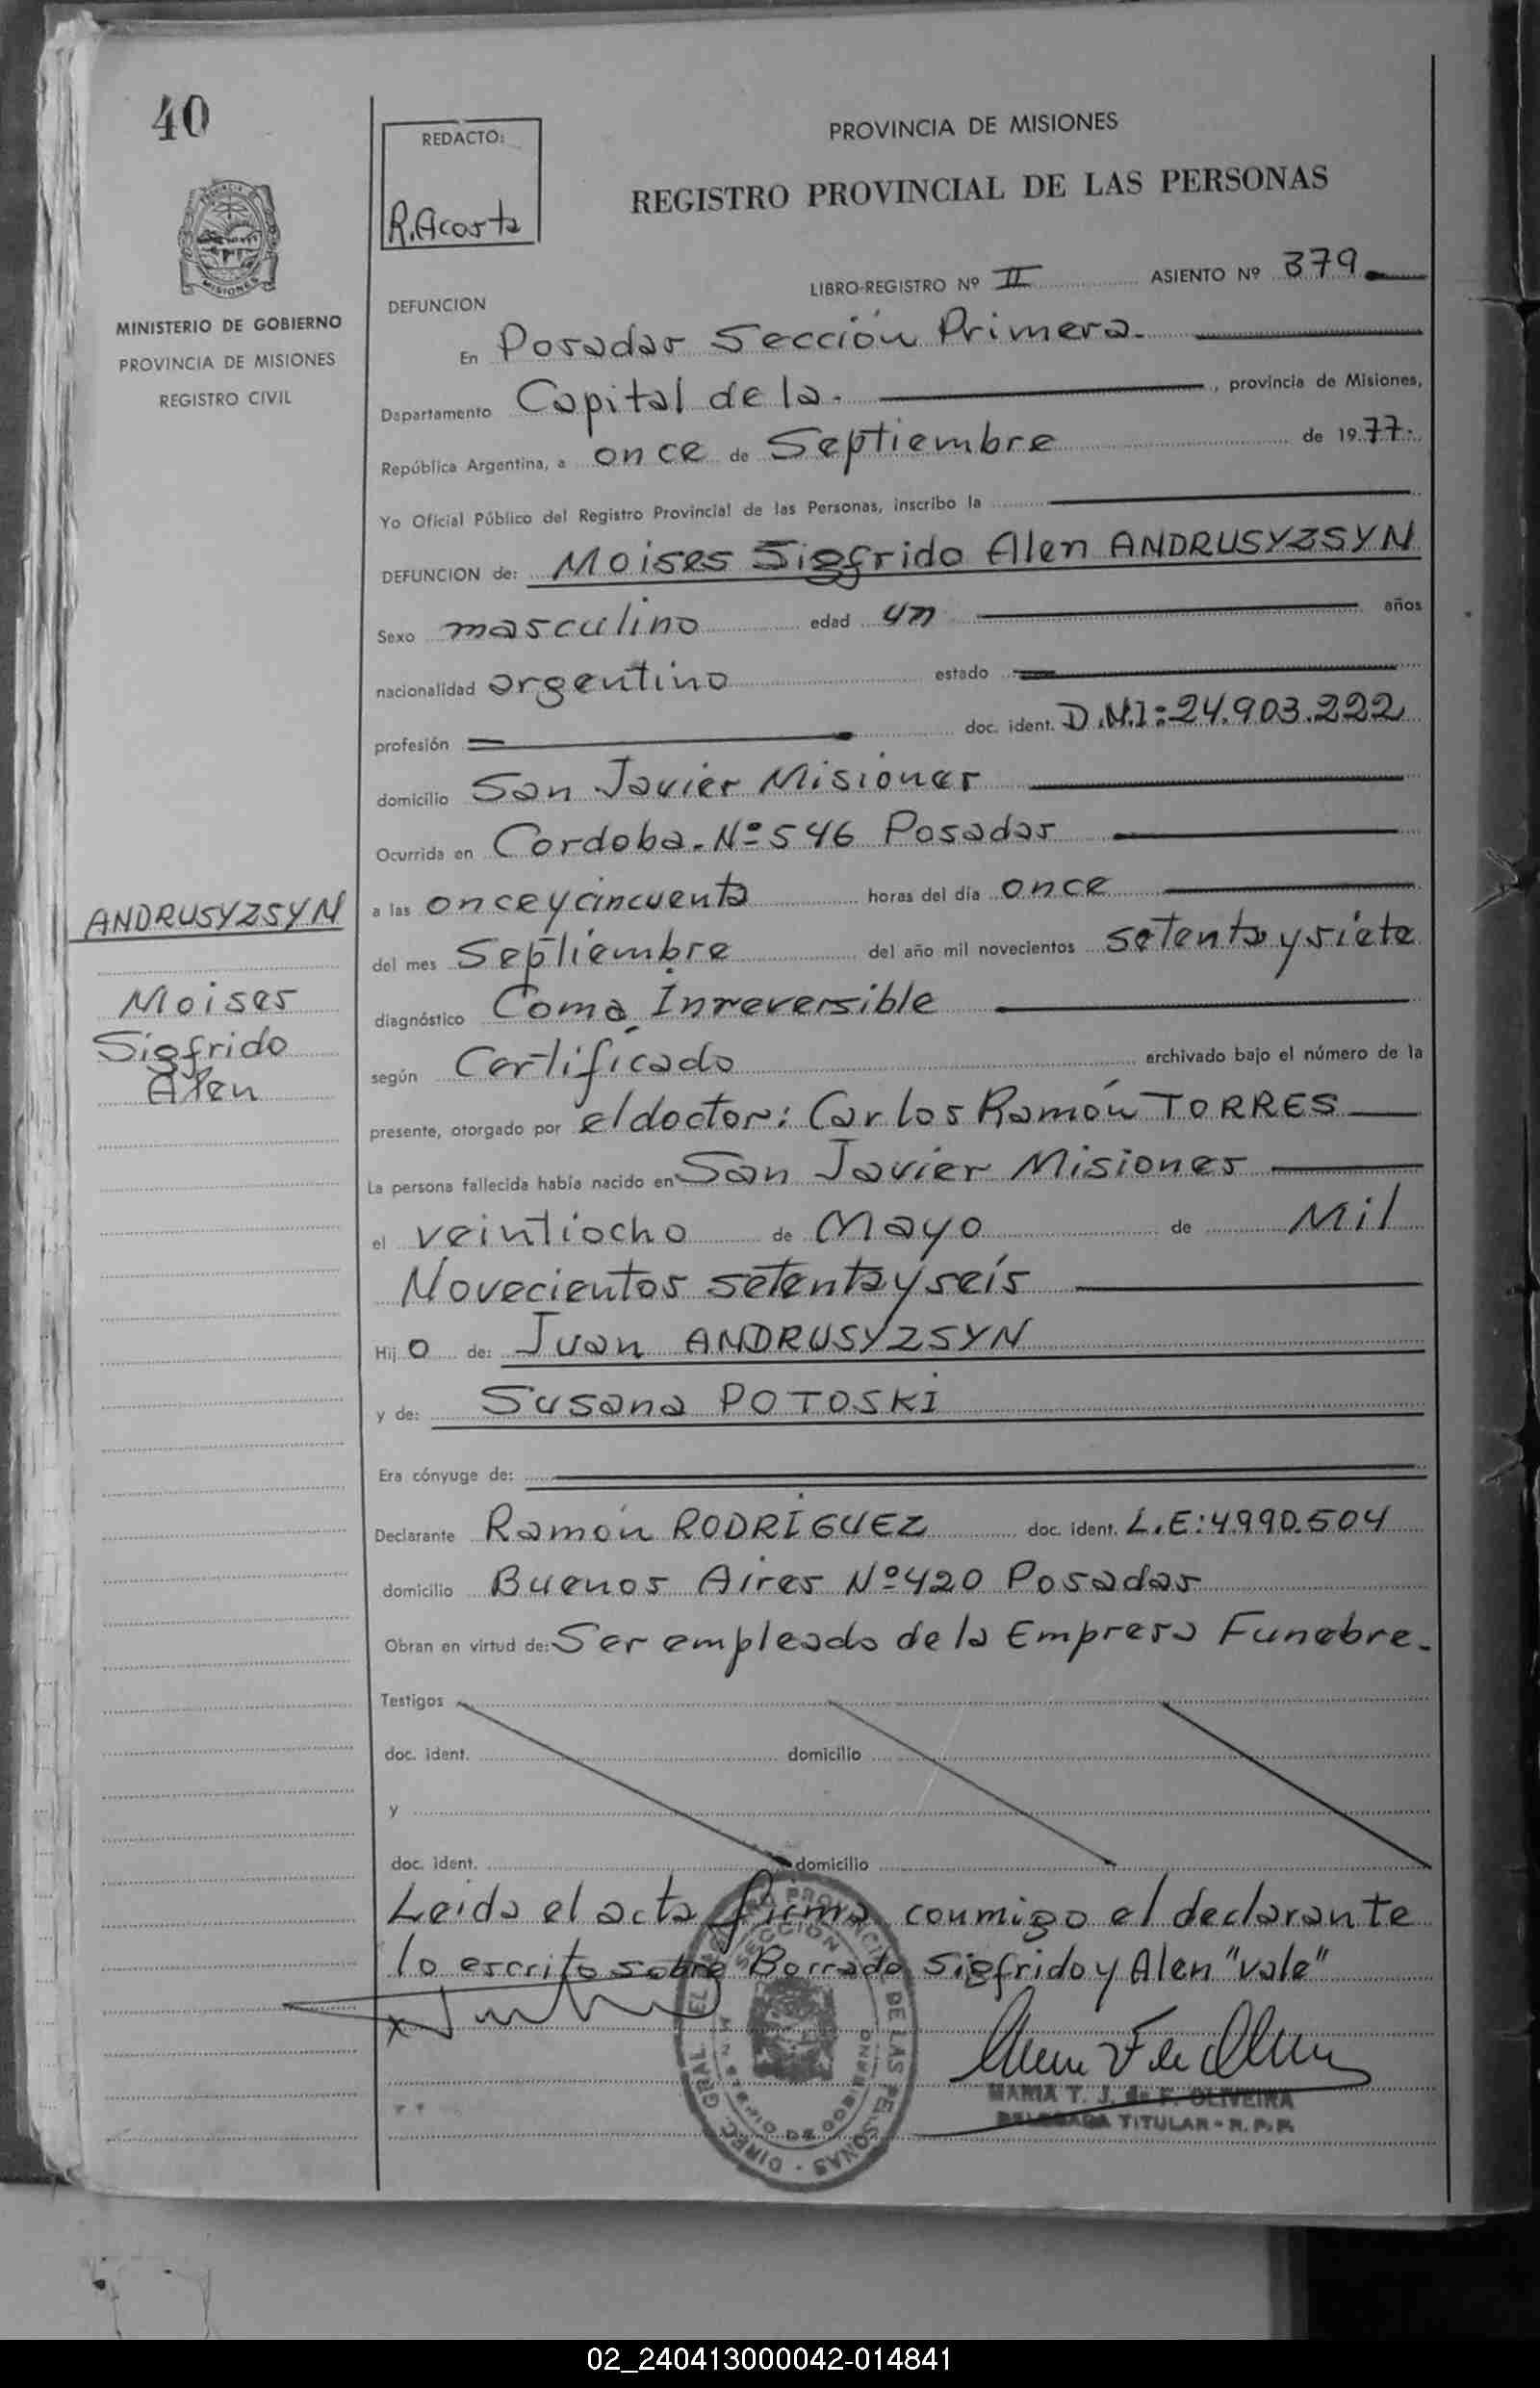 40
REDACTO:
R. Acosta
PROVINCIA DE MISIONES
REGISTRO PROVINCIAL DE LAS PERSONAS
MINISTERIO DE GOBIERNO
PROVINCIA DE MISIONES
REGISTRO CIVIL
LIBRO-REGISTRO Nº II ASIENTO Nº 379
DEFUNCION
En Posadas Sección Primera.
Departamento Capital de la. , provincia de Misiones,
República Argentina, a once de Septiembre de 1977.
Yo Oficial Público del Registro Provincial de las Personas, inscribo la
DEFUNCION de: Moises Sigfrido Alen ANDRUSYZSYN
Sexo masculino edad un años
nacionalidad argentino estado
profesión doc. ident. D.N.I: 24.903.222
domicilio San Javier Misiones
Ocurrida en Cordoba. Nº 546 Posadas
a las once y cincuenta horas del día once
del mes Septiembre del año mil novecientos setenta y siete
diagnóstico Coma Inreversible
según Certificado archivado bajo el número de la
presente, otorgado por el doctor: Carlos Ramón TORRES
La persona fallecida había nacido en San Javier Misiones
el veintiocho de Mayo de Mil
Novecientos setenta y seis
Hijo de: Juan ANDRUSYZSYN
y de: Susana POTOSKI
Era cónyuge de:
Declarante Ramón RODRIGUEZ doc. ident. L.E: 4.990.504
domicilio Buenos Aires Nº 420 Posadas
Obran en virtud de: Ser empleado de la Empresa Funebre.
Testigos
doc. ident. domicilio
y
doc. ident. domicilio
Leida el acta firma conmigo el declarante
lo escrito sobre Borrado Sigfrido y Alen "vale"
ANDRUSYZSYN
Moises
Sigfrido
Alen
MARIA T. J. de F. OLIVEIRA
DELEGADA TITULAR - R. P. P.
02_240413000042-014841